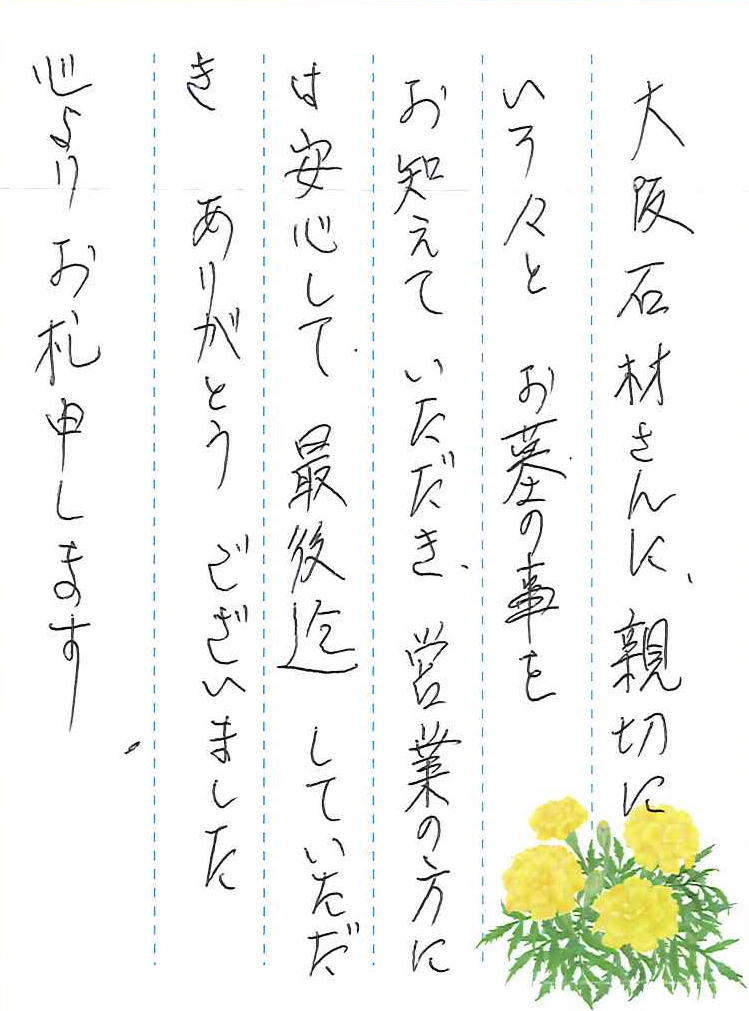 大阪石材さんに、親切に
いろ々と お墓の事を
お知えて いただき、営業の方に
は安心して 最後迄 していただ
き ありがとう ございました。
心より お札申します